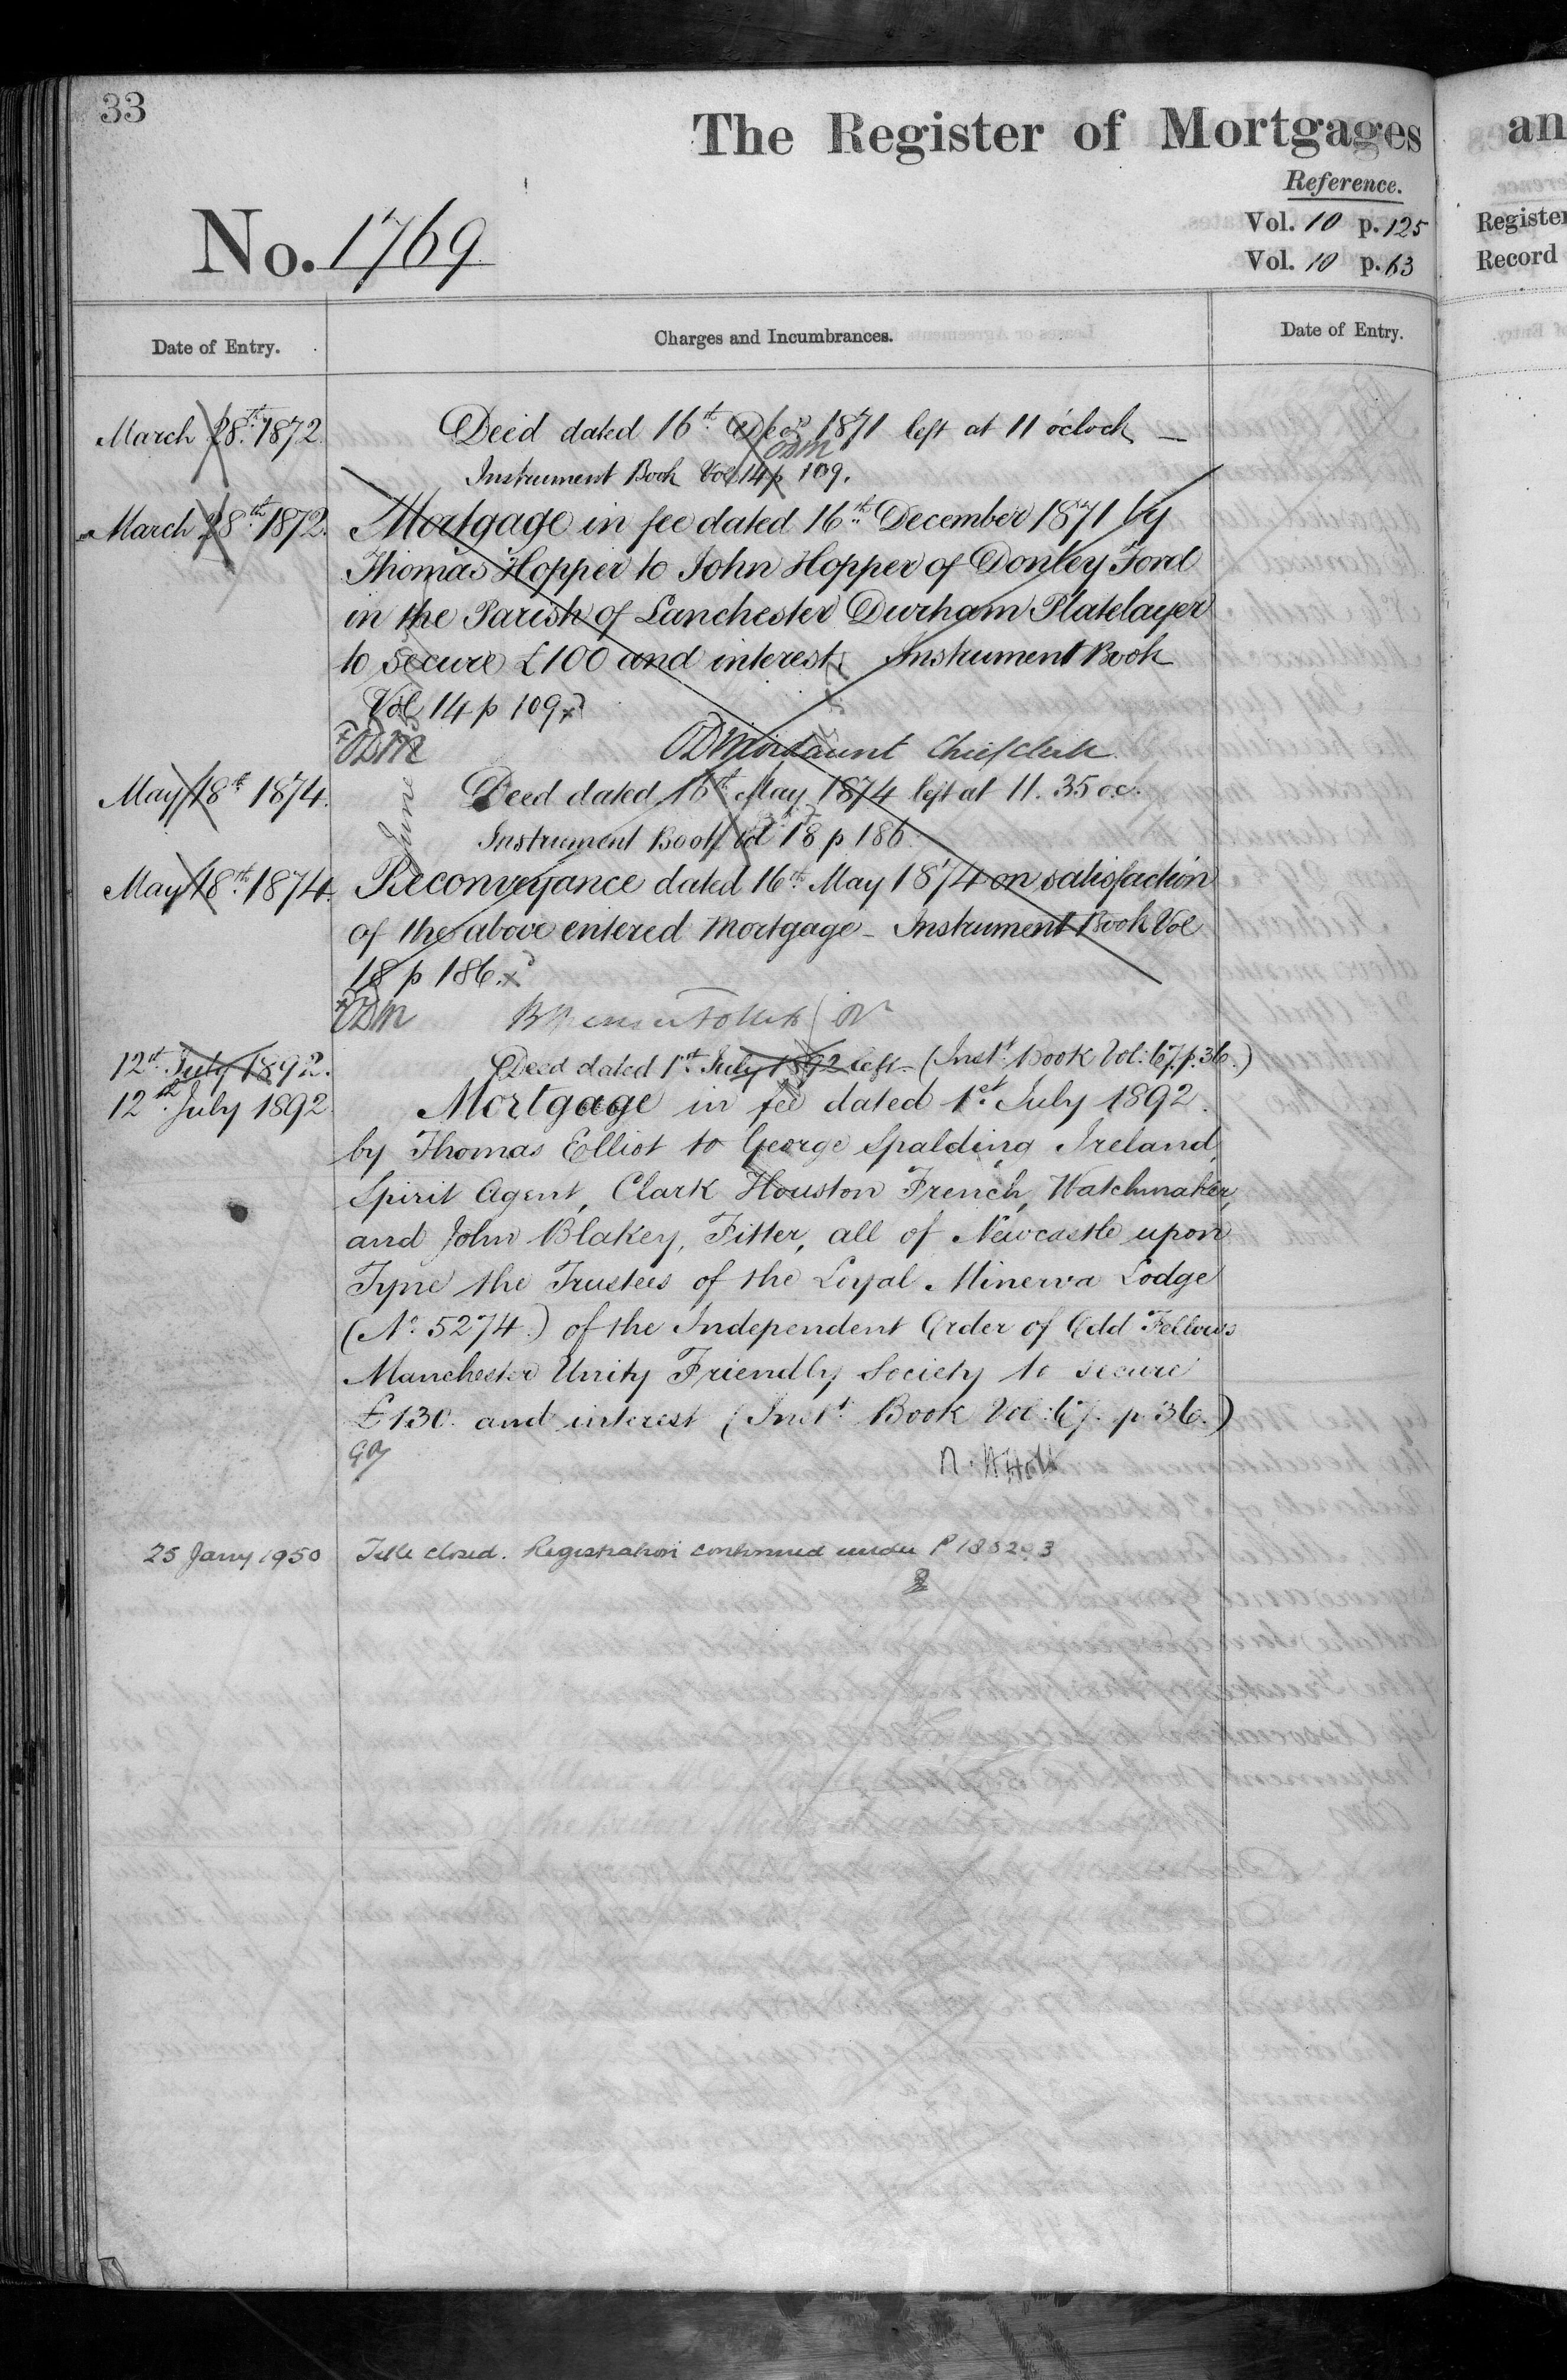 33
The Register of Mortgages
an
Reference.
No. 1769
Vol. 10 p. 125
Register
Vol. 10 p. 63
Record
Date of Entry.
Charges and Incumbrances.
Date of Entry.
March 28th. 1872. Deed dated 16th. Decr. 1871 left at 11 o'clock —
ODM
Instrument Book Vol 14 p 109.
March 28th 1872. Mortgage in fee dated 16th. December 1871 by
Thomas Hopper to John Hopper of Donley Ford
in the Parish of Lanchester Durham Platelayer
to secure £100 and interest. Instrument Book
Vol 14 p 109 x
x ODM ODMordaunt Chief Clerk
May 18th 1874. Deed dated 16th May 1874 left at 11.35 o.c.
Instrument Book Vol 18 p 186.
May 18th. 1874. Reconveyance dated 16th. May 1874 on satisfaction
of the above entered Mortgage - Instrument Book Vol
18 p 186. x
x ODM
12th July 1892. Deed dated 1st July 1892 left - (Inst. Book Vol: 67. p. 36.)
12th. July 1892 Mortgage in fee dated 1st July 1892.
by Thomas Elliot to George Spalding Ireland,
Spirit Agent, Clark Houston French, Watchmaker,
and John Blakey, Fitter, all of Newcastle upon
Tyne the Trustees of the Loyal Minerva Lodge
(No. 5274.) of the Independent Order of Odd Fellows
Manchester Unity Friendly Society to secure
£130. and interest (Inst. Book Vol: 67. p. 36.)
25 Jany 1950 Title closed. Registration continued under